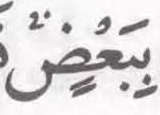 بِبَعْضٍ